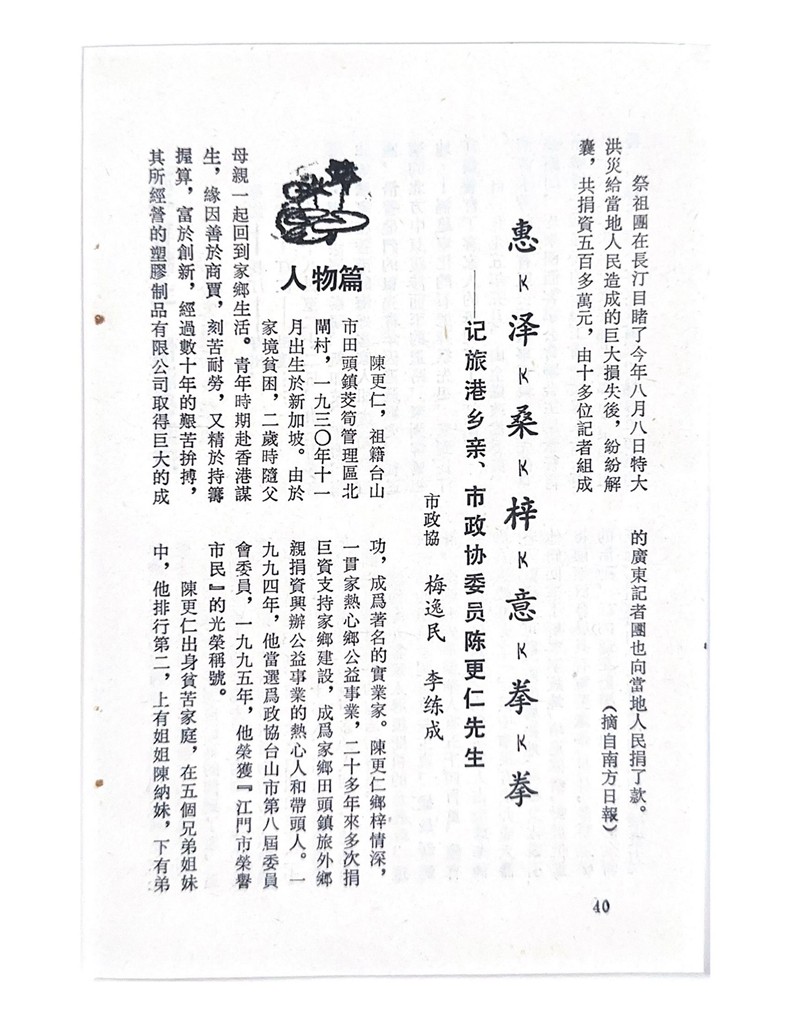 祭祖團在長汀目睹了今年八月八日特大
洪災給當地人民造成的巨大損失後，紛紛解
囊，共捐資五百多萬元，由十多位記者組成
的廣東記者團也向當地人民捐了款。
（摘自南方日報）
惠泽桑梓意拳拳
——记旅港乡亲、市政协委员陈更仁先生
市政協 梅逸民 李练成
人物篇
陳更仁，祖籍台山
市田頭鎮茭筍管理區北
閘村，一九三〇年十一
月出生於新加坡。由於
家境貧困，二歲時隨父
母親一起回到家鄉生活。青年時期赴香港謀
生，緣因善於商賈，刻苦耐勞，又精於持籌
握算，富於創新，經過數十年的艱苦拚搏，
其所經營的塑膠制品有限公司取得巨大的成
功，成爲著名的實業家。陳更仁鄉梓情深，
一貫家熱心鄉公益事業，二十多年來多次捐
巨資支持家鄉建設，成爲家鄉田頭鎮旅外鄉
親捐資興辦公益事業的熱心人和帶頭人。一
九九四年，他當選爲政協台山市第八屆委員
會委員，一九九五年，他榮獲『江門市榮譽
市民』的光榮稱號。
陳更仁出身貧苦家庭，在五個兄弟姐妹
中，他排行第二，上有姐姐陳納妹，下有弟
40